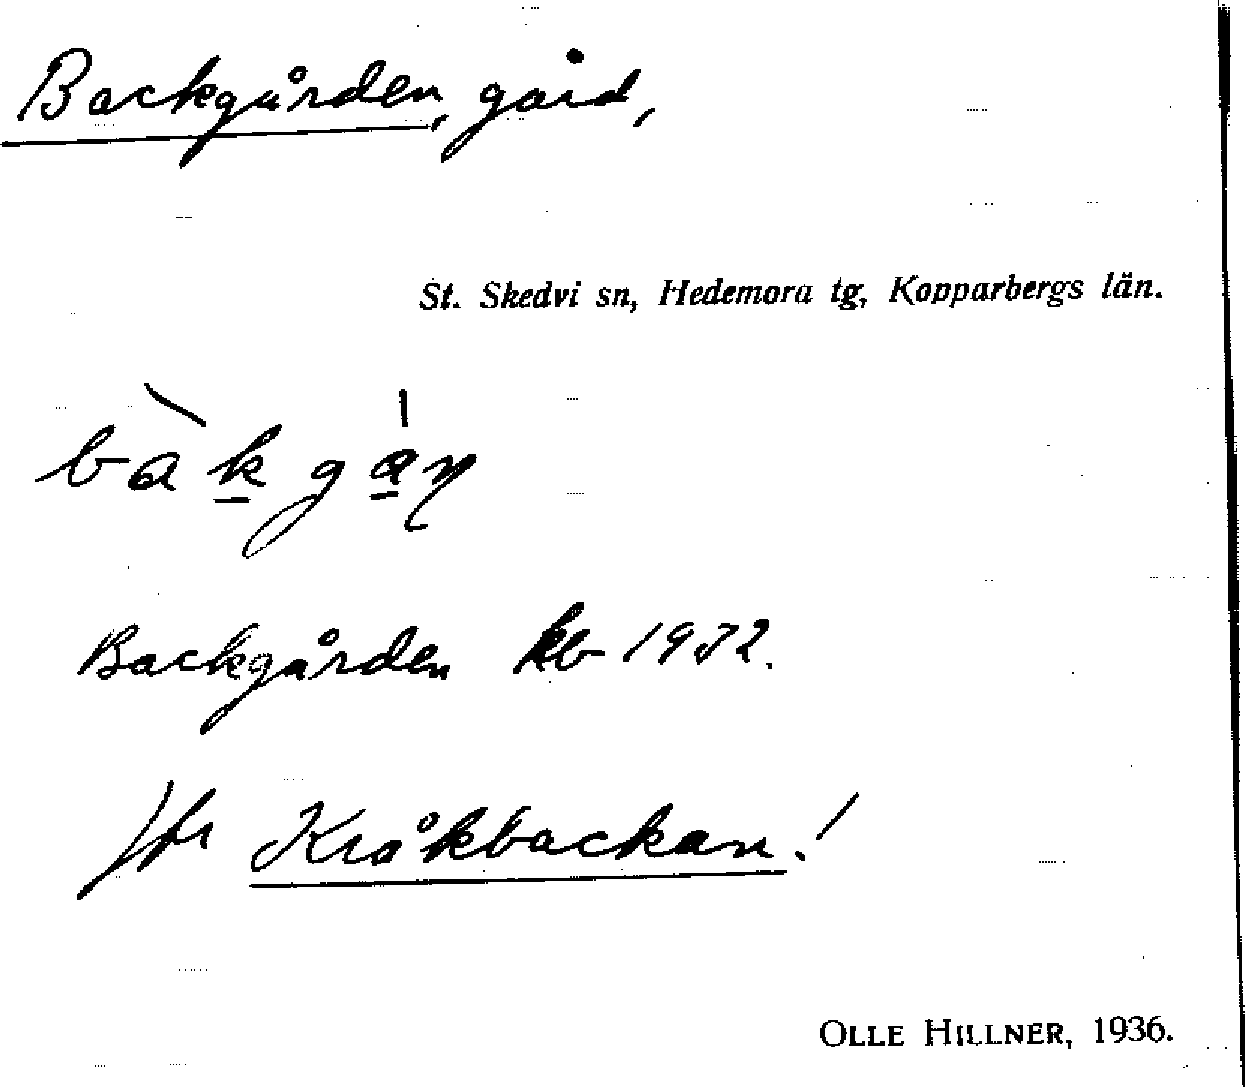 Backgården, gård,
St. Skedvi sn, Hedemora tg, Kopparbergs län.
bàk̲gá̲ɳ
Backgården kb 1932.
Jfr Kråkbackan!
OLLE HILLNER, 1936.